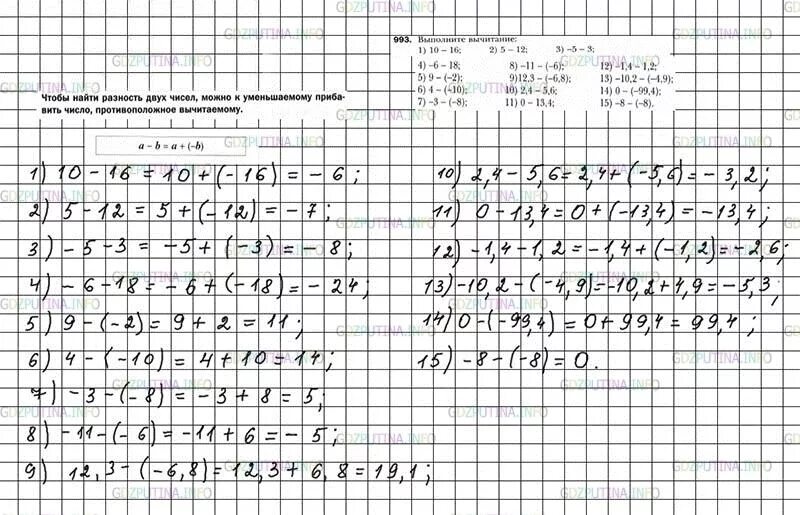 GDZPUTINA.INFO
993. Выполните вычитание:
1) 10 – 16; 2) 5 – 12; 3) –5 – 3;
4) –6 – 18; 8) –11 – (–6); 12) –1,4 – 1,2;
5) 9 – (–2); 9) 12,3 – (–6,8); 13) –10,2 – (–4,9);
6) 4 – (–10); 10) 2,4 – 5,6; 14) 0 – (–99,4);
7) –3 – (–8); 11) 0 – 13,4; 15) –8 – (–8).
Чтобы найти разность двух чисел, можно к уменьшаемому приба-
вить число, противоположное вычитаемому.
a – b = a + (–b)
1) 10 – 16 = 10 + (– 16) = – 6 ;
2) 5 – 12 = 5 + (– 12) = – 7 ;
3) – 5 – 3 = – 5 + (– 3) = – 8 ;
4) – 6 – 18 = – 6 + (– 18) = – 24 ;
5) 9 – (– 2) = 9 + 2 = 11 ;
6) 4 – (– 10) = 4 + 10 = 14 ;
7) – 3 – (– 8) = – 3 + 8 = 5 ;
8) – 11 – (– 6) = – 11 + 6 = – 5 ;
9) 12,3 – (– 6,8) = 12,3 + 6,8 = 19,1 ;
10) 2,4 – 5,6 = 2,4 + (– 5,6) = – 3,2 ;
11) 0 – 13,4 = 0 + (– 13,4) = – 13,4 ;
12) – 1,4 – 1,2 = – 1,4 + (– 1,2) = – 2,6 ;
13) – 10,2 – (– 4,9) = – 10,2 + 4,9 = – 5,3 ;
14) 0 – (– 99,4) = 0 + 99,4 = 99,4 ;
15) – 8 – (– 8) = 0 .